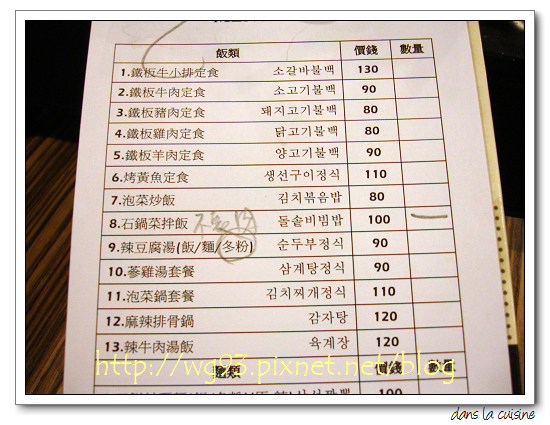 飯類 價錢 數量
1.鐵板牛小排定食 소갈바불백 130
2.鐵板牛肉定食 소고기불백 90
3.鐵板豬肉定食 돼지고기불백 80
4.鐵板雞肉定食 닭고기불백 80
5.鐵板羊肉定食 양고기불백 90
6.烤黃魚定食 생선구이정식 110
7.泡菜炒飯 김치볶음밥 80
8.石鍋菜拌飯 돌솥비빔밥 100
9.辣豆腐湯(飯/麵/冬粉) 순두부정식 90
10.蔘雞湯套餐 삼계탕정식 90
11.泡菜鍋套餐 김치찌개정식 110
12.麻辣排骨鍋 감자탕 120
13.辣牛肉湯飯 육계장 120
http://wg93.pixnet.net/blog
麵類 價錢 數量
100
dans la cuisine